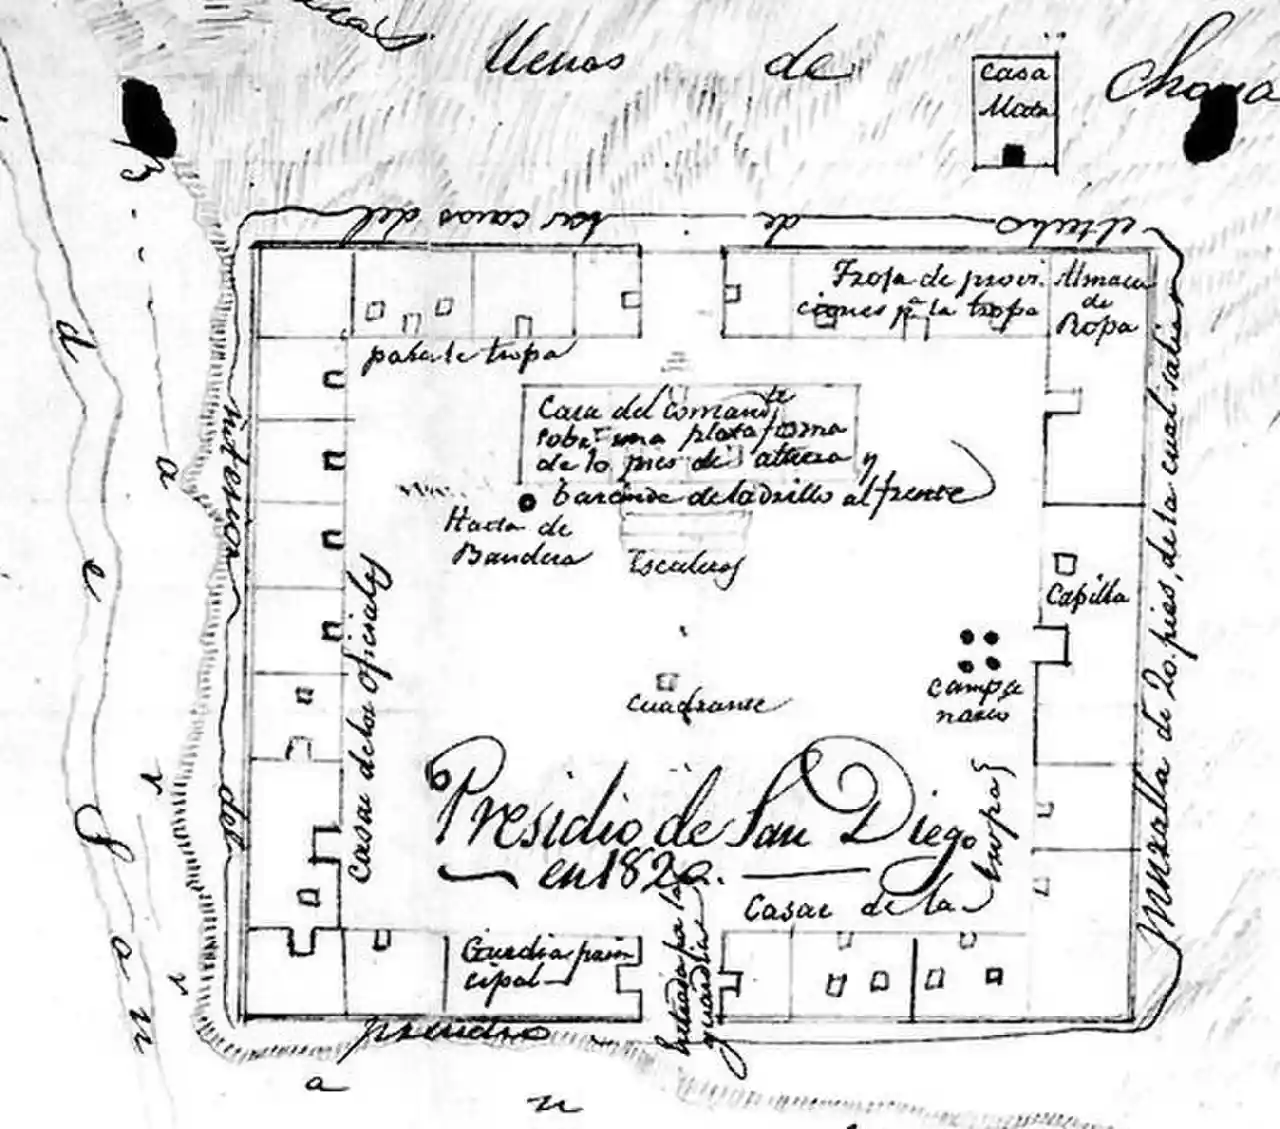 llenas de
Casa
Mata
el techo de las casas del
interior del
presidio
Muralla de 20. pies, de la cual salian
Tropa de provi.
ciones pa la tropa
Almacen
de
Ropa
para le tropa
Casa del comandte
sobre una plataforma
de 10 pies de altura y
baranda de ladrillo al frente
Hasta de
Bandera
Escaleras
Capilla
Campa
nario
cuadrante
Casas de los oficiales
Presidio de San Diego
en 1820.
Casas de la tropa
Guardia prin
cipal
Entrada pa la
guardia
B a r r a n
d e S a n